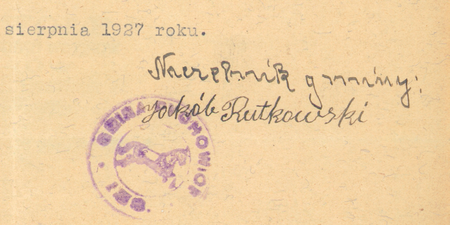 sierpnia 1927 roku.
Naczelnik gminy:
Jakób Rutkowski